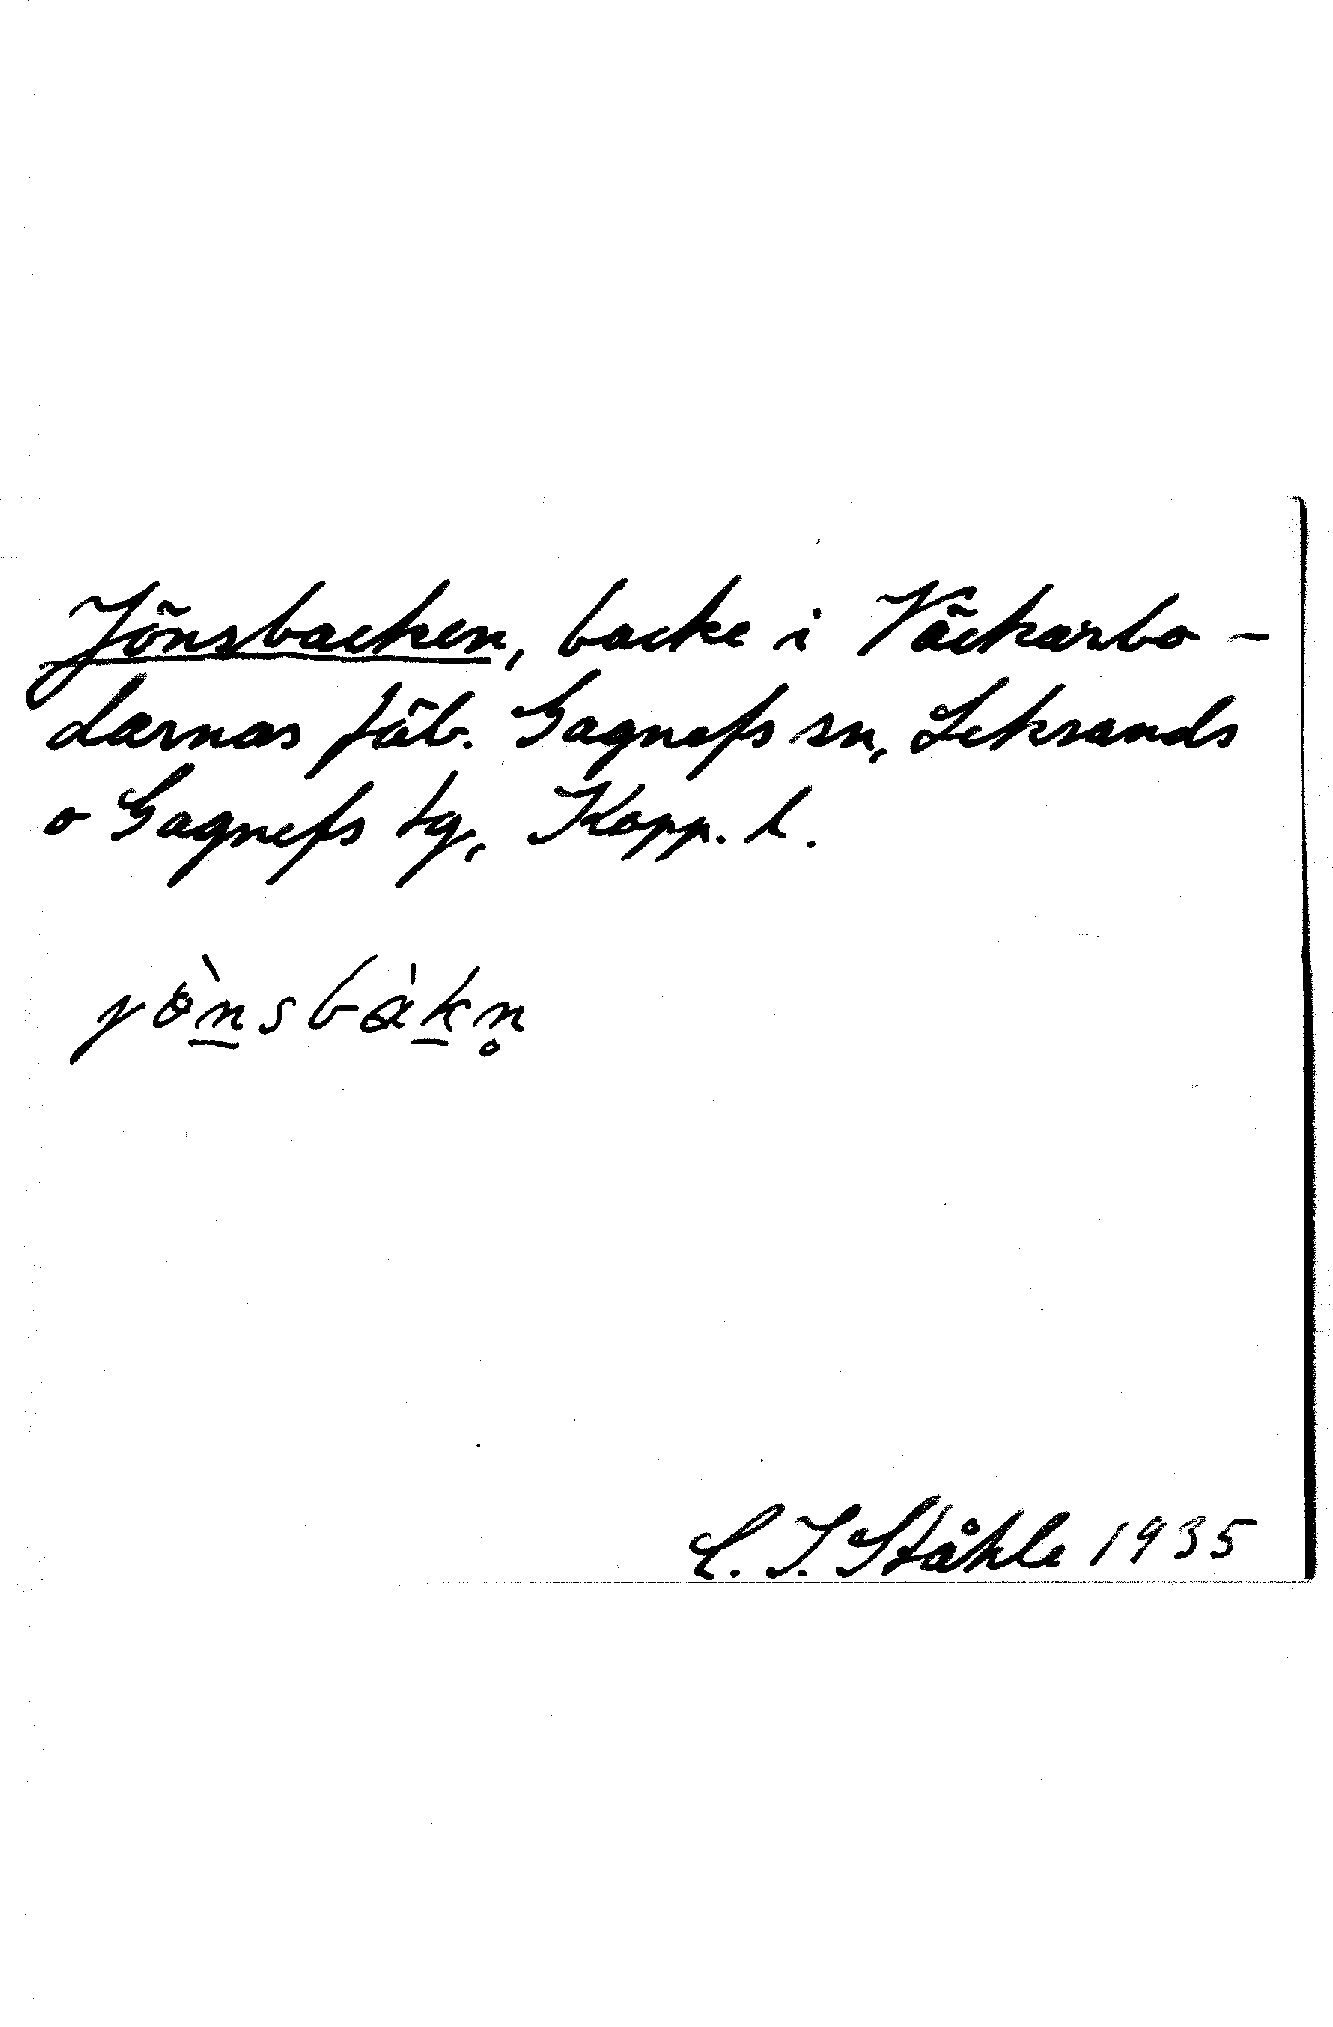 Jönsbacken, backe i Väckarbo-
darnas fäb. Gagnefs sn, Leksands
o Gagnefs tg, Kopp. l.
jö̀nsbàkn̥
C. I. Ståhle 1935